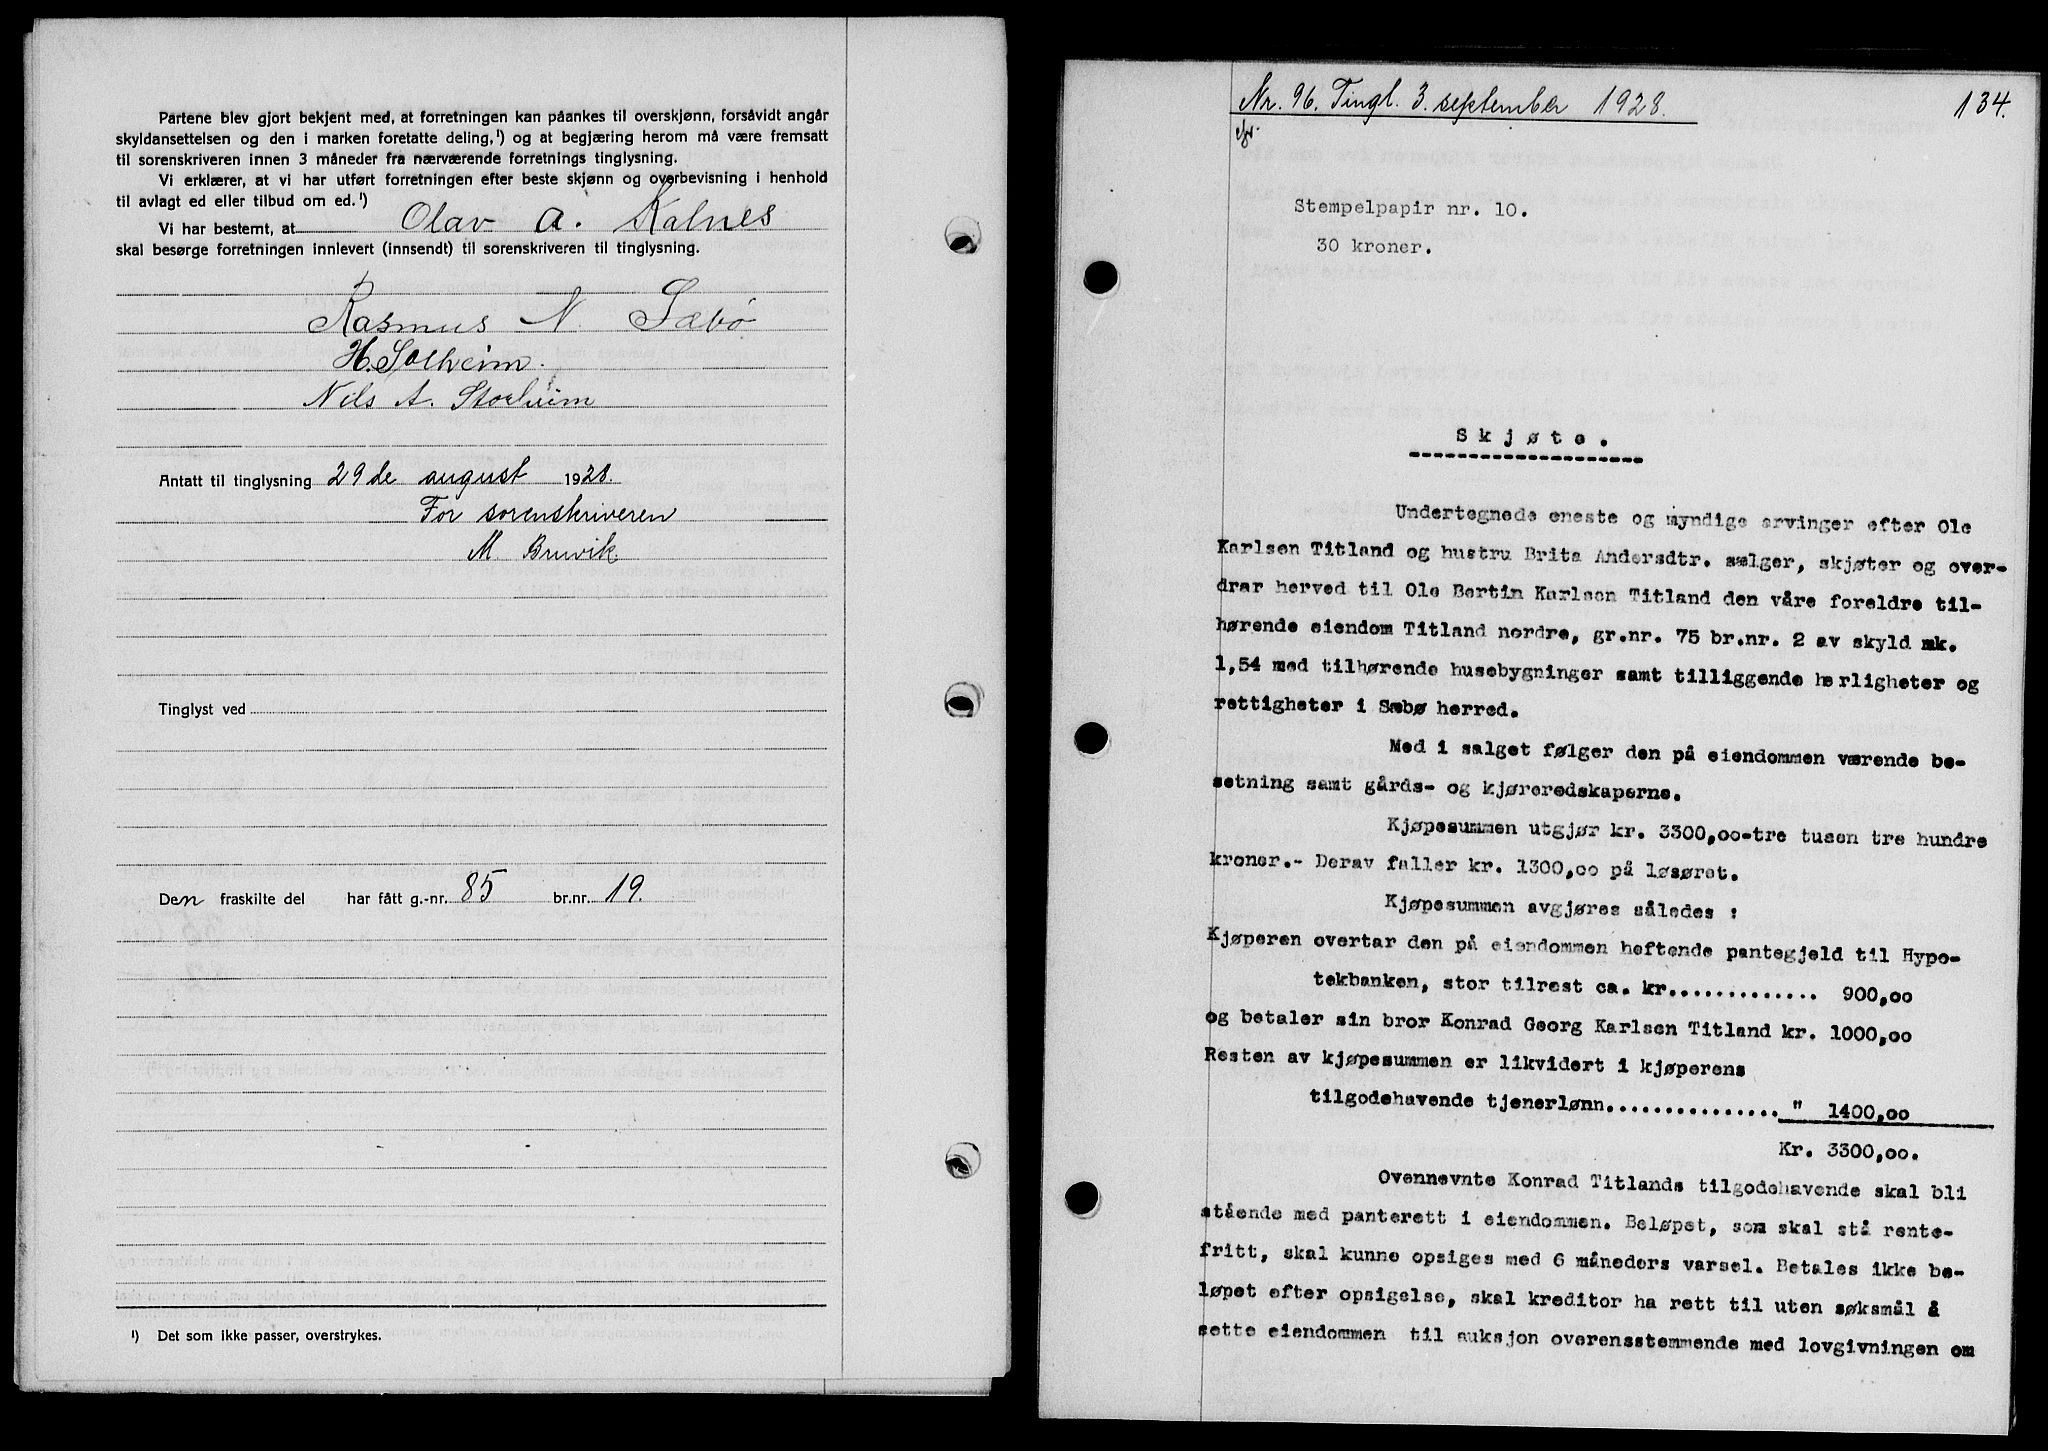 Partene blev gjort bekjent med, at forretningen kan påankes til overskjønn, forsåvidt angår
skyldansettelsen og den i marken foretatte deling,¹) og at begjæring herom må være fremsatt
til sorenskriveren innen 3 måneder fra nærværende forretnings tinglysning.
Vi erklærer, at vi har utført forretningen efter beste skjønn og overbevisning i henhold
til avlagt ed eller tilbud om ed.¹)
Vi har bestemt, at Olav A. Kalnes
skal besørge forretningen innlevert (innsendt) til sorenskriveren til tinglysning.
Rasmus N. Sæbø
H. Solheim.
Nils A. Storheim
Antatt til tinglysning 29de august 1928.
For sorenskriveren
M Bruvik.
Tinglyst ved
Den fraskilte del har fått g.-nr. 85 br.nr. 19.
¹) Det som ikke passer, overstrykes.
Nr. 96. Tingl. 3. september 1928. 134.
Stempelpapir nr. 10.
30 kroner.
Skjøte.
Undertegnede eneste og myndige arvinger efter Ole
Karlsen Titland og hustru Brita Andersdtr. sælger, skjøter og over-
drar herved til Ole Bertin Karlsen Titland den våre foreldre til-
hørende eiendom Titland nordre, gr.nr. 75 br.nr. 2 av skyld mk.
1,54 med tilhørende husebygninger samt tilliggende herligheter og
rettigheter i Sæbø herred.
Med i salget følger den på eiendommen værende be-
setning samt gårds- og kjøreredskaperne.
Kjøpesummen utgjør kr. 3300,00-tre tusen tre hundre
kroner.- Derav faller kr. 1300,00 på løsøret.
Kjøpesummen avgjøres således :
Kjøperen overtar den på eiendommen heftende pantegjeld til Hypo-
tekbanken, stor tilrest ca. kr............. 900,00
og betaler sin bror Konrad Georg Karlsen Titland kr. 1000,00
Resten av kjøpesummen er likvidert i kjøperens
tilgodehavende tjenerlønn............... " 1400,00
Kr. 3300,00.
Ovennevnte Konrad Titlands tilgodehavende skal bli
stående med panterett i eiendommen. Beløpet, som skal stå rente-
fritt, skal kunne opsiges med 6 måneders varsel. Betales ikke be-
løpet efter opsigelse, skal kreditor ha rett til uten søksmål å
sette eiendommen til auksjon overensstemmende med lovgivningen om